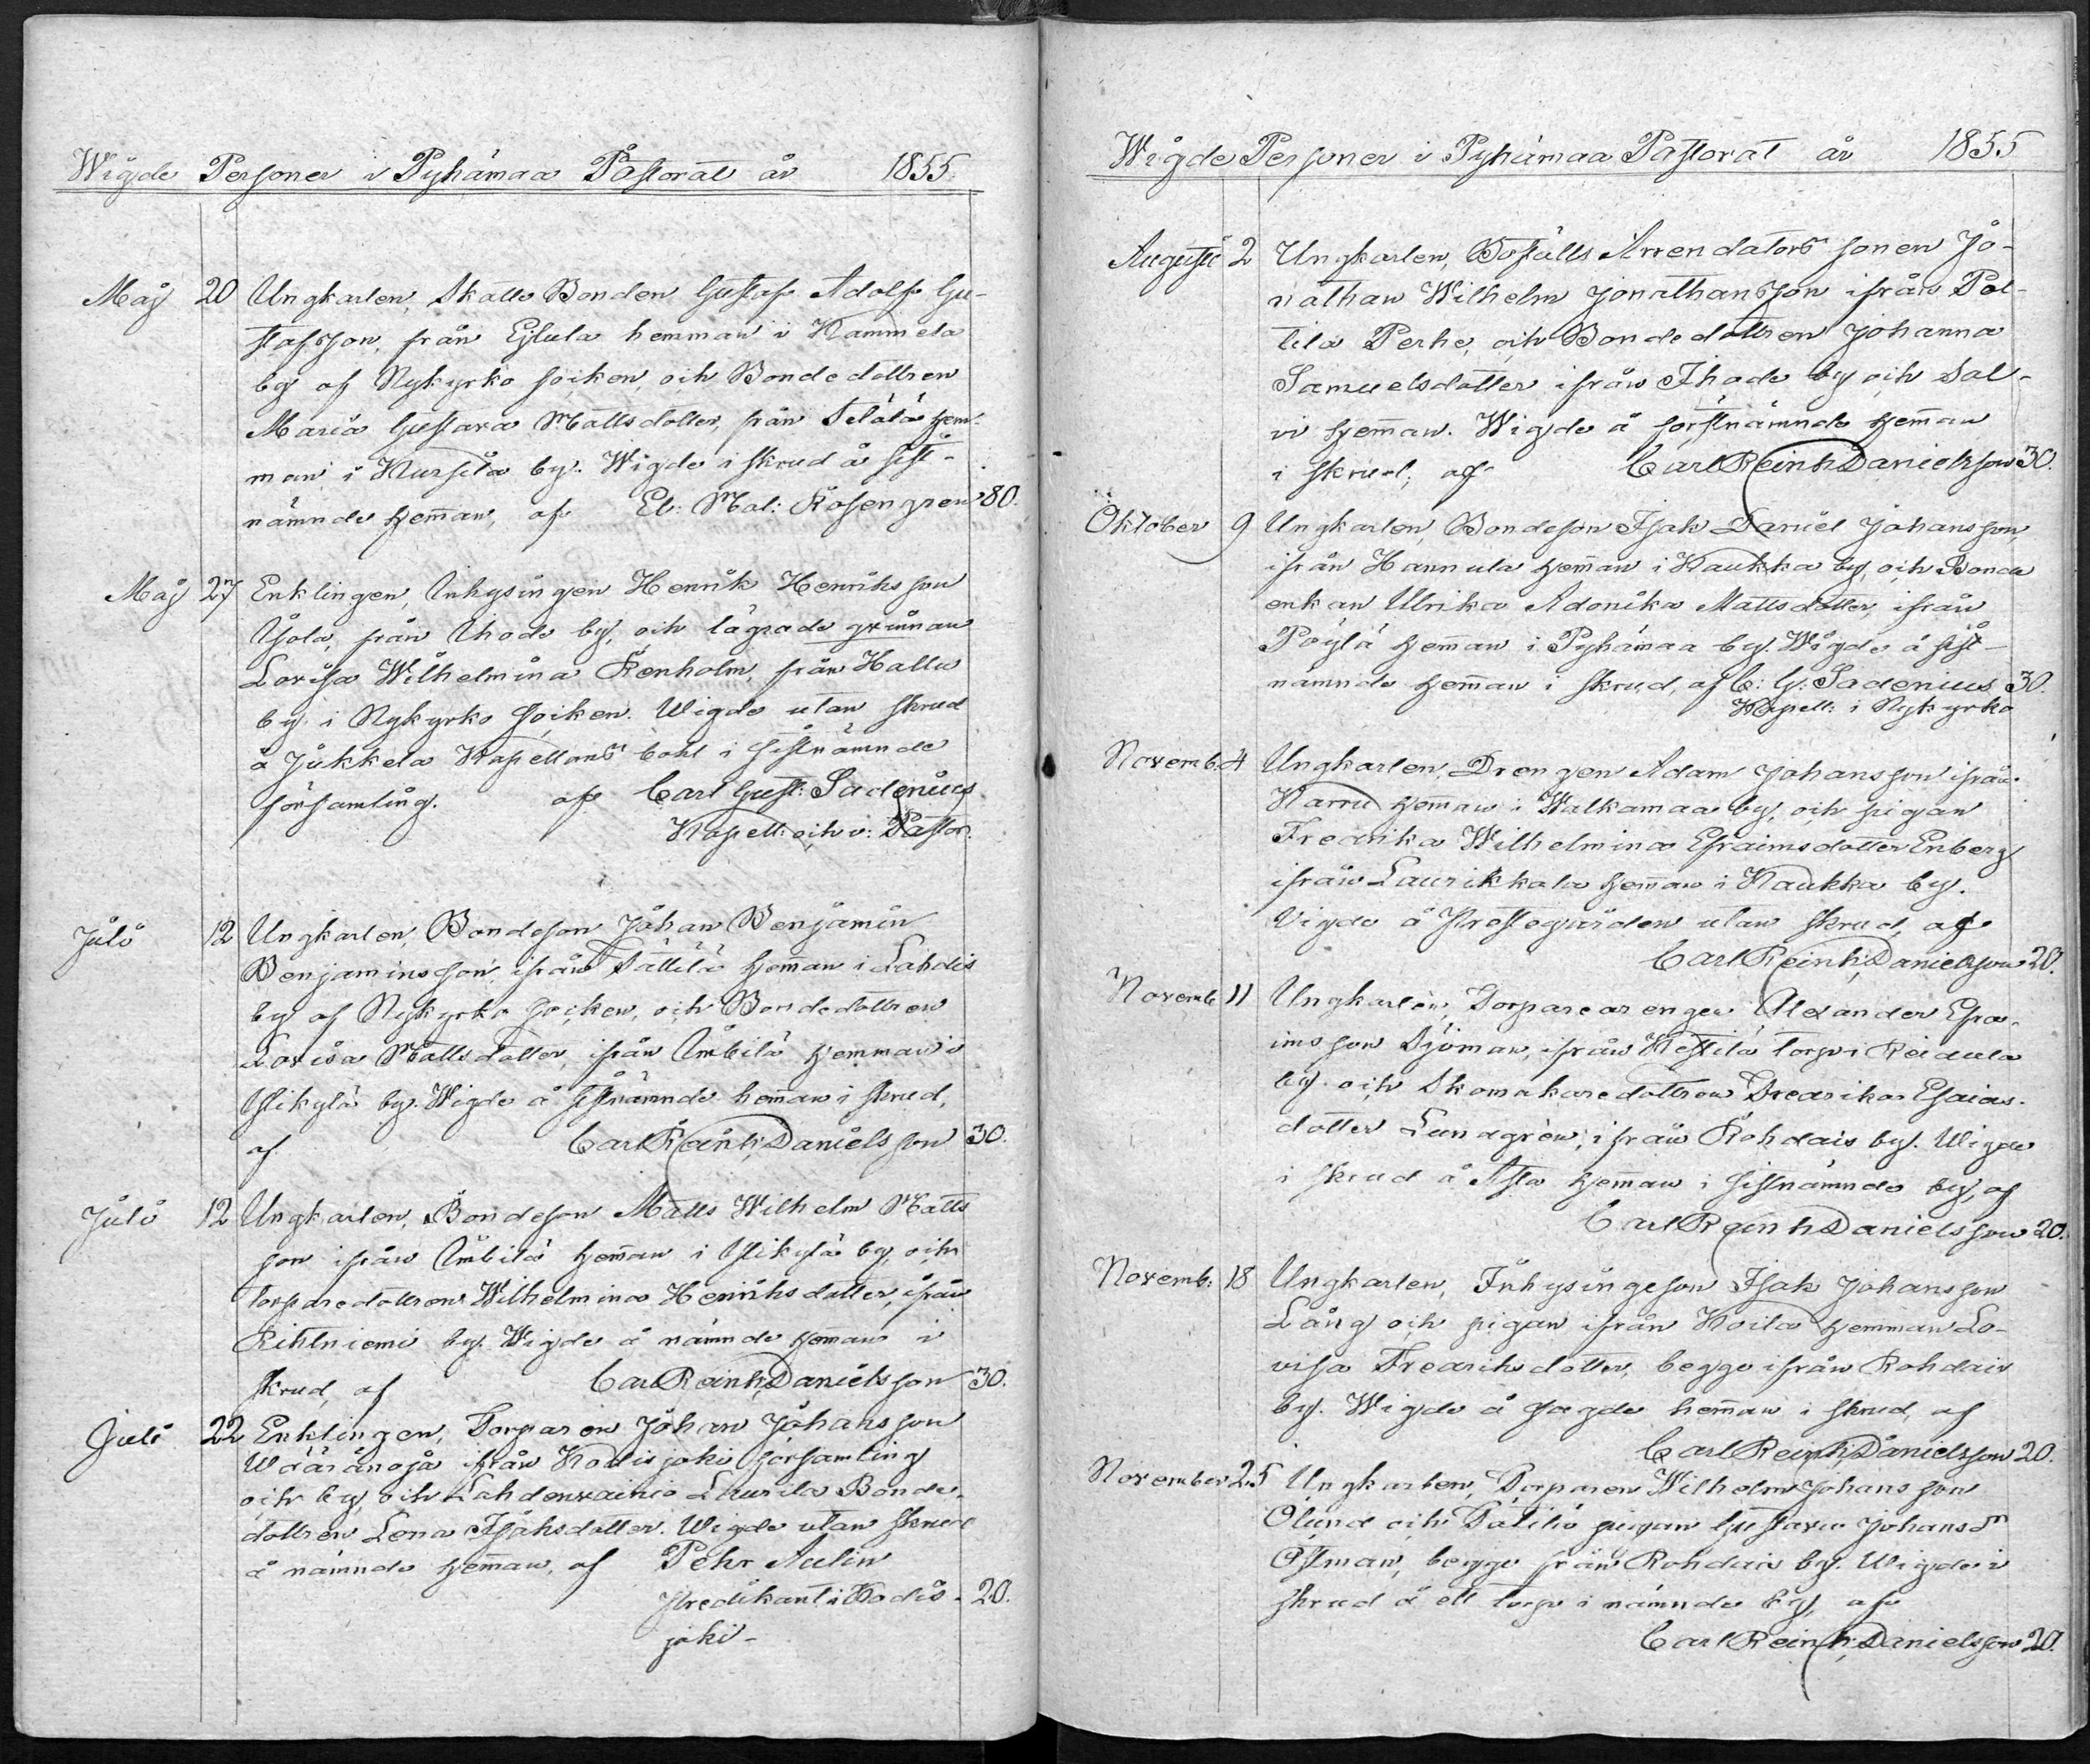 Wigde Personer i Pyhämaa Pastorat år 1855.
Maj 20 Ungkarlen, Skatte Bonden Gustaf Adolf Gu-
stafsson, från Ejlula hemman i Kammela
by af Nykyrko socken, och Bondedottren
Maria Gustava Mattsdotter, från Sälälä hem-
man i Kursila by. Wigde i skrud å sist-
nämnde hem̄an, af El: Mal: Rosengren 80.
Maj 27 Enklingen, Inhysingen Henrik Henriksson
Yjola, från Ihode by, och lägrade qvinnan
Lovisa Wilhelmina Renholm, från Hallu
by i Nykyrko Socken. Wigde utan skrud
å Jukkela Kapellans bohl i sistnämnde
församling. af Carl Gust: Sadenius
Kapell: och v: Pastor.
Juli 12 Ungkarlen, Bondeson Johan Benjamin
Benjaminsson, ifrån Tättilä hem̄an i Lahdis
by af Nykyrko Socken, och Bondedottren
Lovisa Mattsdotter, ifrån Imbilä hemman i
Ylikylä by. Wigde å sistnämnde hem̄an i skrud,
af Carl Reinh: Danielsson 30.
Juli 12 Ungkarlen, Bondeson Matts Wilhelm Matts
son ifrån Imbilä hem̄an i Ylikylä by, och
torparedottren Wilhelmina Henriksdotter, ifrån
Rihtniemi by. Wigde å nämnde hem̄an i
skrud, af Carl Reinh: Danielsson 30.
Juli 22 Enklingen, Torparen Johan Johansson
Wääränojä ifrån Hodisjoki församling
och by, och Lahdenvainio Laurila Bonde-
dottren Lena Isaksdotter. Wigde utan skrud
å nämnde hem̄an, af Pehr Aulin
Predikant i Hodis- 20.
joki-
Wigde Personer i Pyhämaa Pastorat år 1855
Augusti 2 Ungkarlen, Boställs Arrendators sonen Jo-
nathan Wilhelm Jonathansson ifrån Pol-
tila Perhe, och Bondedottren Johanna
Samuelsdotter ifrån Ihode by och Sal-
vi hem̄an. Wigde å förstnämnde hem̄an
i skrud, af Carl Reinh: Danielsson 30.
Oktober 9 Ungkarlen, Bondeson Isak Daniel Johansson,
ifrån Hannula hem̄an i Kaukka by, och Bonde
enkan Ulrika Adonika Mattsdotter, ifrån
Pöylä hem̄an i Pyhämaa by. Wigde å sist-
nämnde hem̄an i skrud, af C: G: Sadenius 30.
Kapell: i Nykyrko
Novemb. 4 Ungkarlen, Drengen Adam Johansson ifrån
Karru hem̄an i Walkamaa by, och pigan
Fredrika Wilhelmina Efraimsdotter Enberg
ifrån Laurikkala hem̄an i Kaukka by.
Vigde å Prestegården utan skrud, af
Carl Reinh: Danielsson 20.
Novemb 11 Ungkarlen, Torparedrengen Alexander Efra-
imsson Sjöman, ifrån Mestilä torp i Reidula
by och Skomakaredottren Fredrika Esaias-
dotter Lundgren, ifrån Rohdais by. Wigde
i skrud å Asta hem̄an i sistnämnde by, af
Carl Reinh: Danielsson 20.
Novemb: 18 Ungkarlen, Inhysingeson Isak Johansson
Lång och pigan ifrån Koila hemman Lo-
visa Fredriksdotter, begge ifrån Rohdais
by. Wigde å sagde hem̄an i skrud, af
Carl Reinh: Danielsson 20.
November 25 Ungkarlen, Torparen Wilhelm Johansson
Ölund och Pätilö pigan Gustava Johansdr
Östman, begge från Rohdais by. Wigde i
skrud å ett torp i nämnde by, af
Carl Reinh: Danielsson 20.